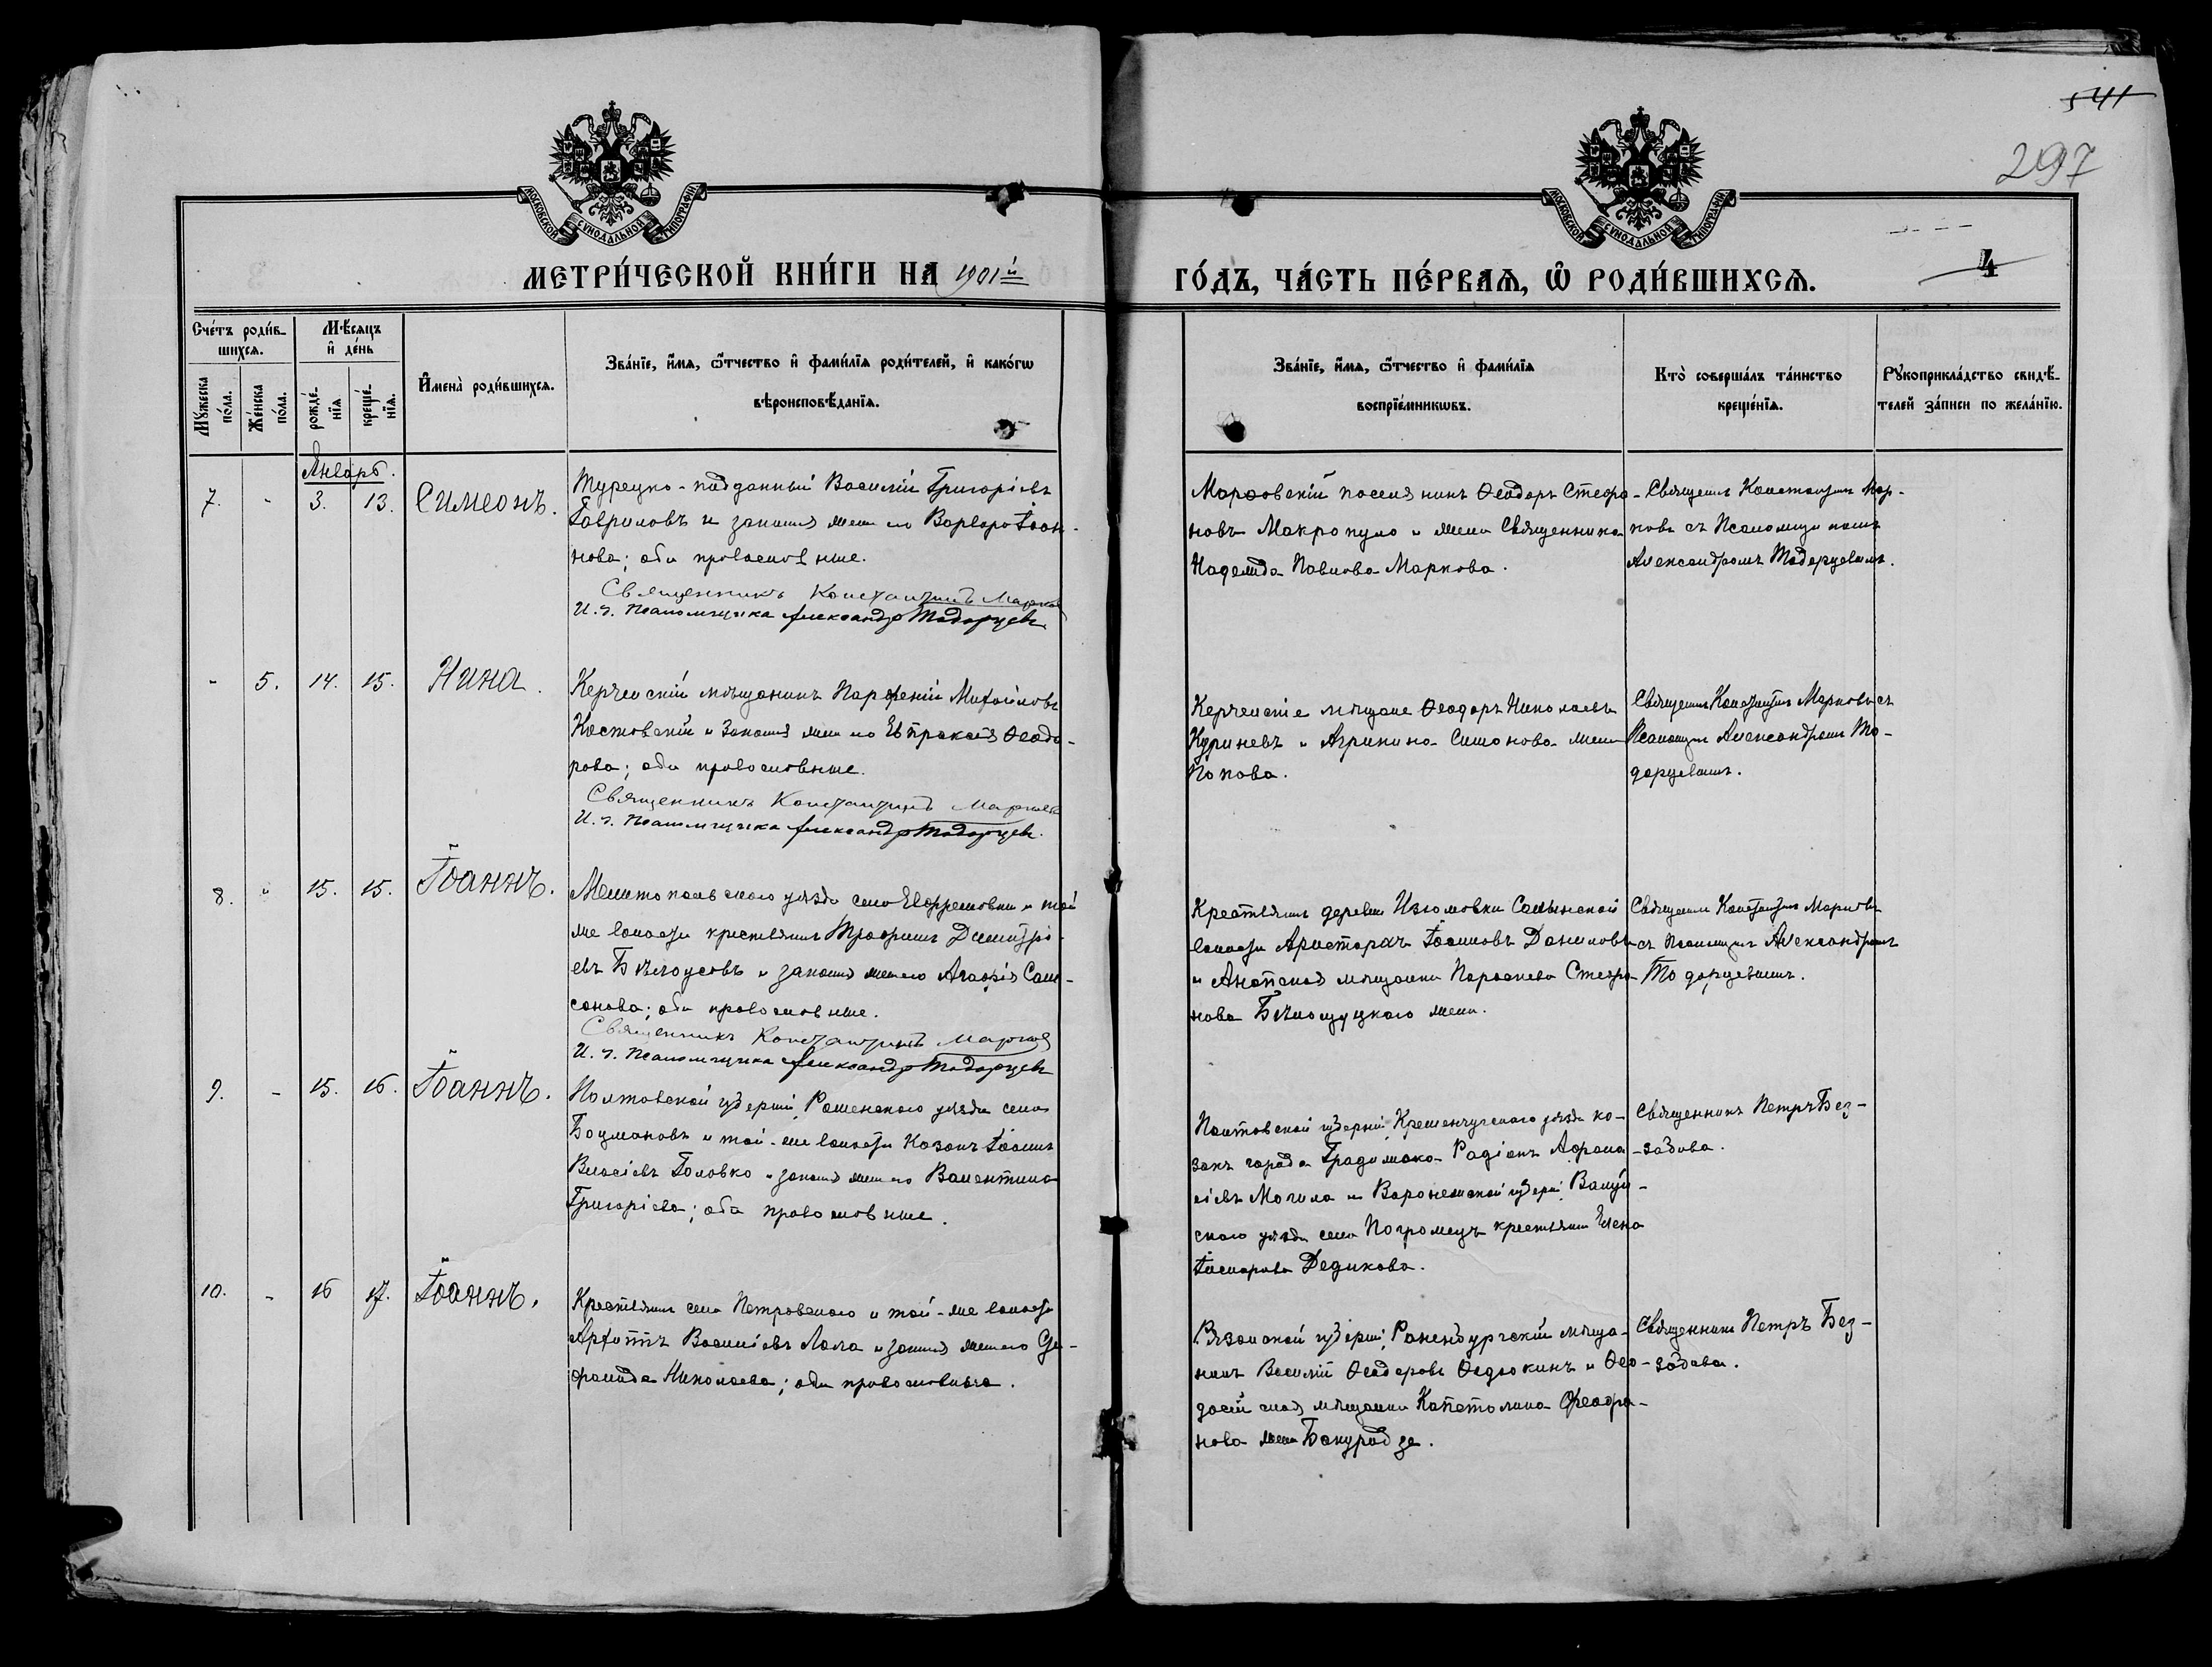 541
297
МОСКОВСКОЙ СѴНОДАЛЬНОЙ ТИПОГРАФІИ
МОСКОВСКОЙ СѴНОДАЛЬНОЙ ТИПОГРАФІИ
МЕТРИ́ЧЕСКОЙ КНИ́ГИ НА 1901й
ГО́ДЪ, ЧА́СТЬ ПЕ́РВАѦ, Ѽ РОДИ́ВШИХСѦ.
4
Сче́тъ роди́в-
шихсѧ.
Мꙋ́жеска по́ла.
Же́нска по́ла.
Мѣ́сѧцъ
и҆ де́нь
рожде́-
нїѧ
креще́-
нїѧ.
И҆мена̀ роди́вшихсѧ.
Зва́нїе, и҆́мѧ, ѻ҆́тчество и҆ фами́лїѧ роди́телей, и҆ како́гѡ
вѣроисповѣ́данїѧ.
Зва́нїе, и҆́мѧ, ѻ҆́тчество и҆ фами́лїѧ
воспрїе́мникѡвъ.
Кто̀ соверша́лъ та́инство
креще́нїѧ.
Рꙋкоприкла́дство свидѣ́-
телей за́писи по жела́нїю.
Январь.
7. - 3. 13. Симеонъ.
Турецко-подданный Василій Григоріевъ
Гавриловъ и законная жена его Варвара Іоан-
нова; оба православные.
Священникъ Константинъ Марковъ
И. д. Псаломщика Александръ Тодорцевъ
Марфовскій поселянинъ Ѳеодоръ Стефа-
новъ Макропуло и жена Священника
Надежда Павлова Маркова.
Священникъ Константинъ Мар-
ковъ съ Псаломщикомъ
Александромъ Тодорцевымъ.
- 5. 14. 15. Нина.
Керченскій мѣщанинъ Парѳеній Михайловъ
Костовскій и законная жена его Евпраксія Ѳеодо-
рова; оба православные.
Священникъ Константинъ Марковъ
И. д. Псаломщика Александръ Тодорцевъ.
Керченскіе мѣщане Ѳеодоръ Николаевъ
Куриневъ и Агрипина Симонова жена
Попова.
Священникъ Константинъ Марковъ съ
Псаломщ. Александромъ То-
дорцевымъ.
8. - 15. 15. Іоаннъ.
Мелитопольскаго уѣзда села Ефремовки и той
же волости крестьянинъ Трофимъ Димитрі-
евъ Бѣлоусовъ и законная жена его Агафія Сам-
сонова; оба православные.
Священникъ Константинъ Марковъ
И. д. Псаломщика Александръ Тодорцевъ
Крестьянинъ деревни Изюмовки Салынской
волости Аристархъ Іоанновъ Даниловъ
и Анапская мѣщанка Параскева Стефа-
нова жена.
Священникъ Константинъ Марковъ
съ Псаломщ. Александромъ
Тодорцевымъ.
9. - 15. 16. Іоаннъ.
Полтовской губерніи, Роменскаго уѣзда села
Боцмановъ и той-же волости Казакъ Іоаннъ
Власіевъ Головко и законная жена его Валентина
Григоріева; оба православные.
Полтовской губерніи, Кременчугскаго уѣзда ко-
закъ города Градижска Радіонъ Афана-
сіевъ Могила и Воронежской губерніи, Валуй-
скаго уѣзда села Погромецъ крестьянка Елена
Дедикова.
Священникъ Петръ Без-
задова.
10. - 16 17. Іоаннъ.
Крестьянинъ села Петровскаго и той-же волости
Архиппъ Василіевъ Лала и законная жена его Се-
рафима Николаева; оба православные.
Рязанской губерніи, Раненбургскій мѣща-
нинъ Василій Ѳеодоровъ Ѳедюкинъ и Ѳео-
досійская мѣщанка Капетолина Феофа-
нова жена Бакурадзе.
Священникъ Петръ Без-
задова.